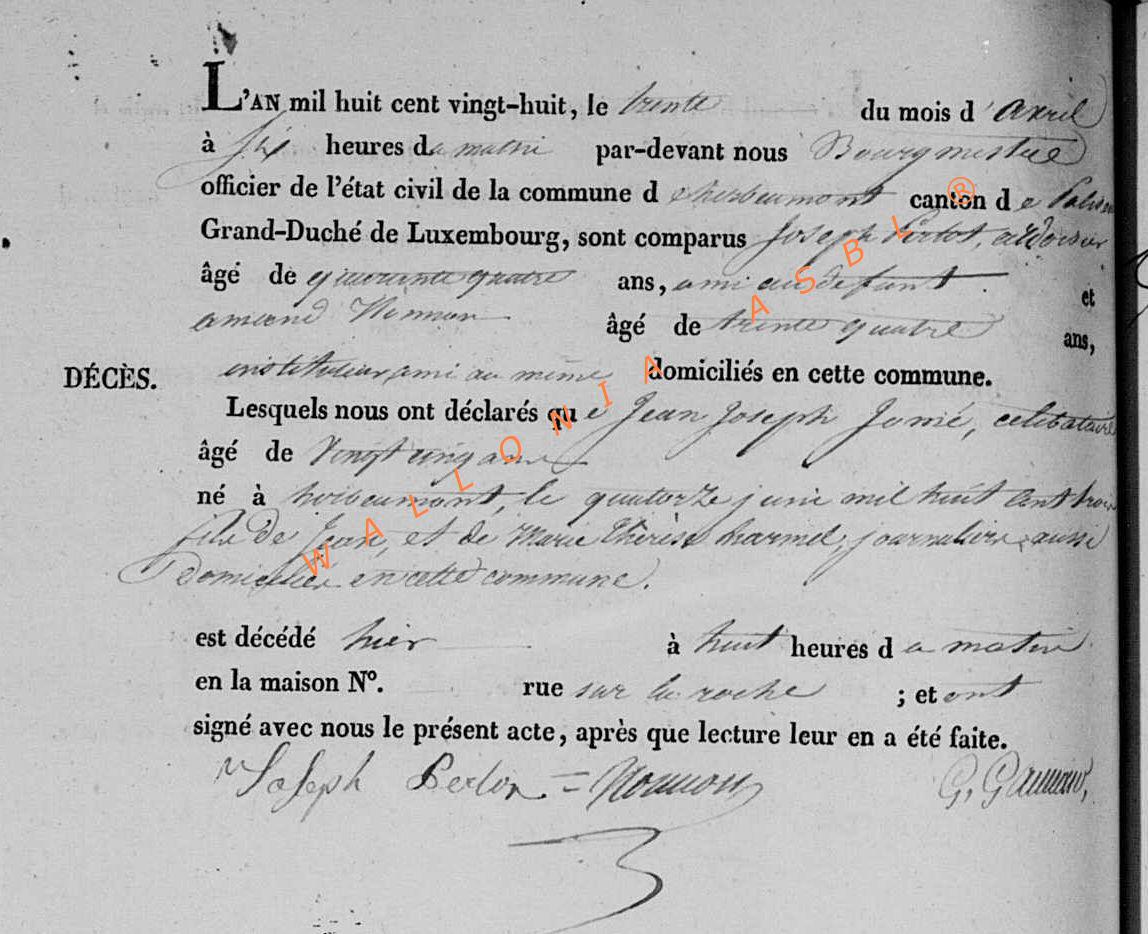 L'AN mil huit cent vingt-huit, le trente du mois d'avril
à six heures du matin par-devant nous Bourgmestre
officier de l'état civil de la commune d'herbeumont canton de
Grand-Duché de Luxembourg, sont comparus Joseph ardoisier
âgé de quarante quatre ans, ami au défunt et
amand âgé de trente quatre ans,
DÉCÈS. instituteur, ami au même domiciliés en cette commune.
Lesquels nous ont déclarés que Jean Joseph célibataire
âgé de vingt cinq ans
né à herbeumont, le quatorze juin mil huit cent trois
fils de Jean, et de Marie Thérèse harmel, journaliers, aussi
domiciliés en cette commune.
est décédé hier à huit heures du matin
en la maison N°. rue sur la roche ; et ont
signé avec nous le présent acte, après que lecture leur en a été faite.
Joseph
WALLONIA ASBL ®